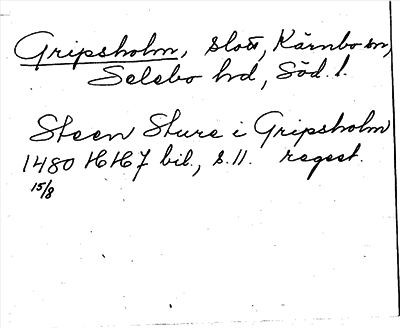 Gripsholm, slott, Kärnbo sn,
Selebo hd, Söd. l.
Steen Sture i Gripsholm
1480 HH 7 bil., s. 11. regest.
15/8